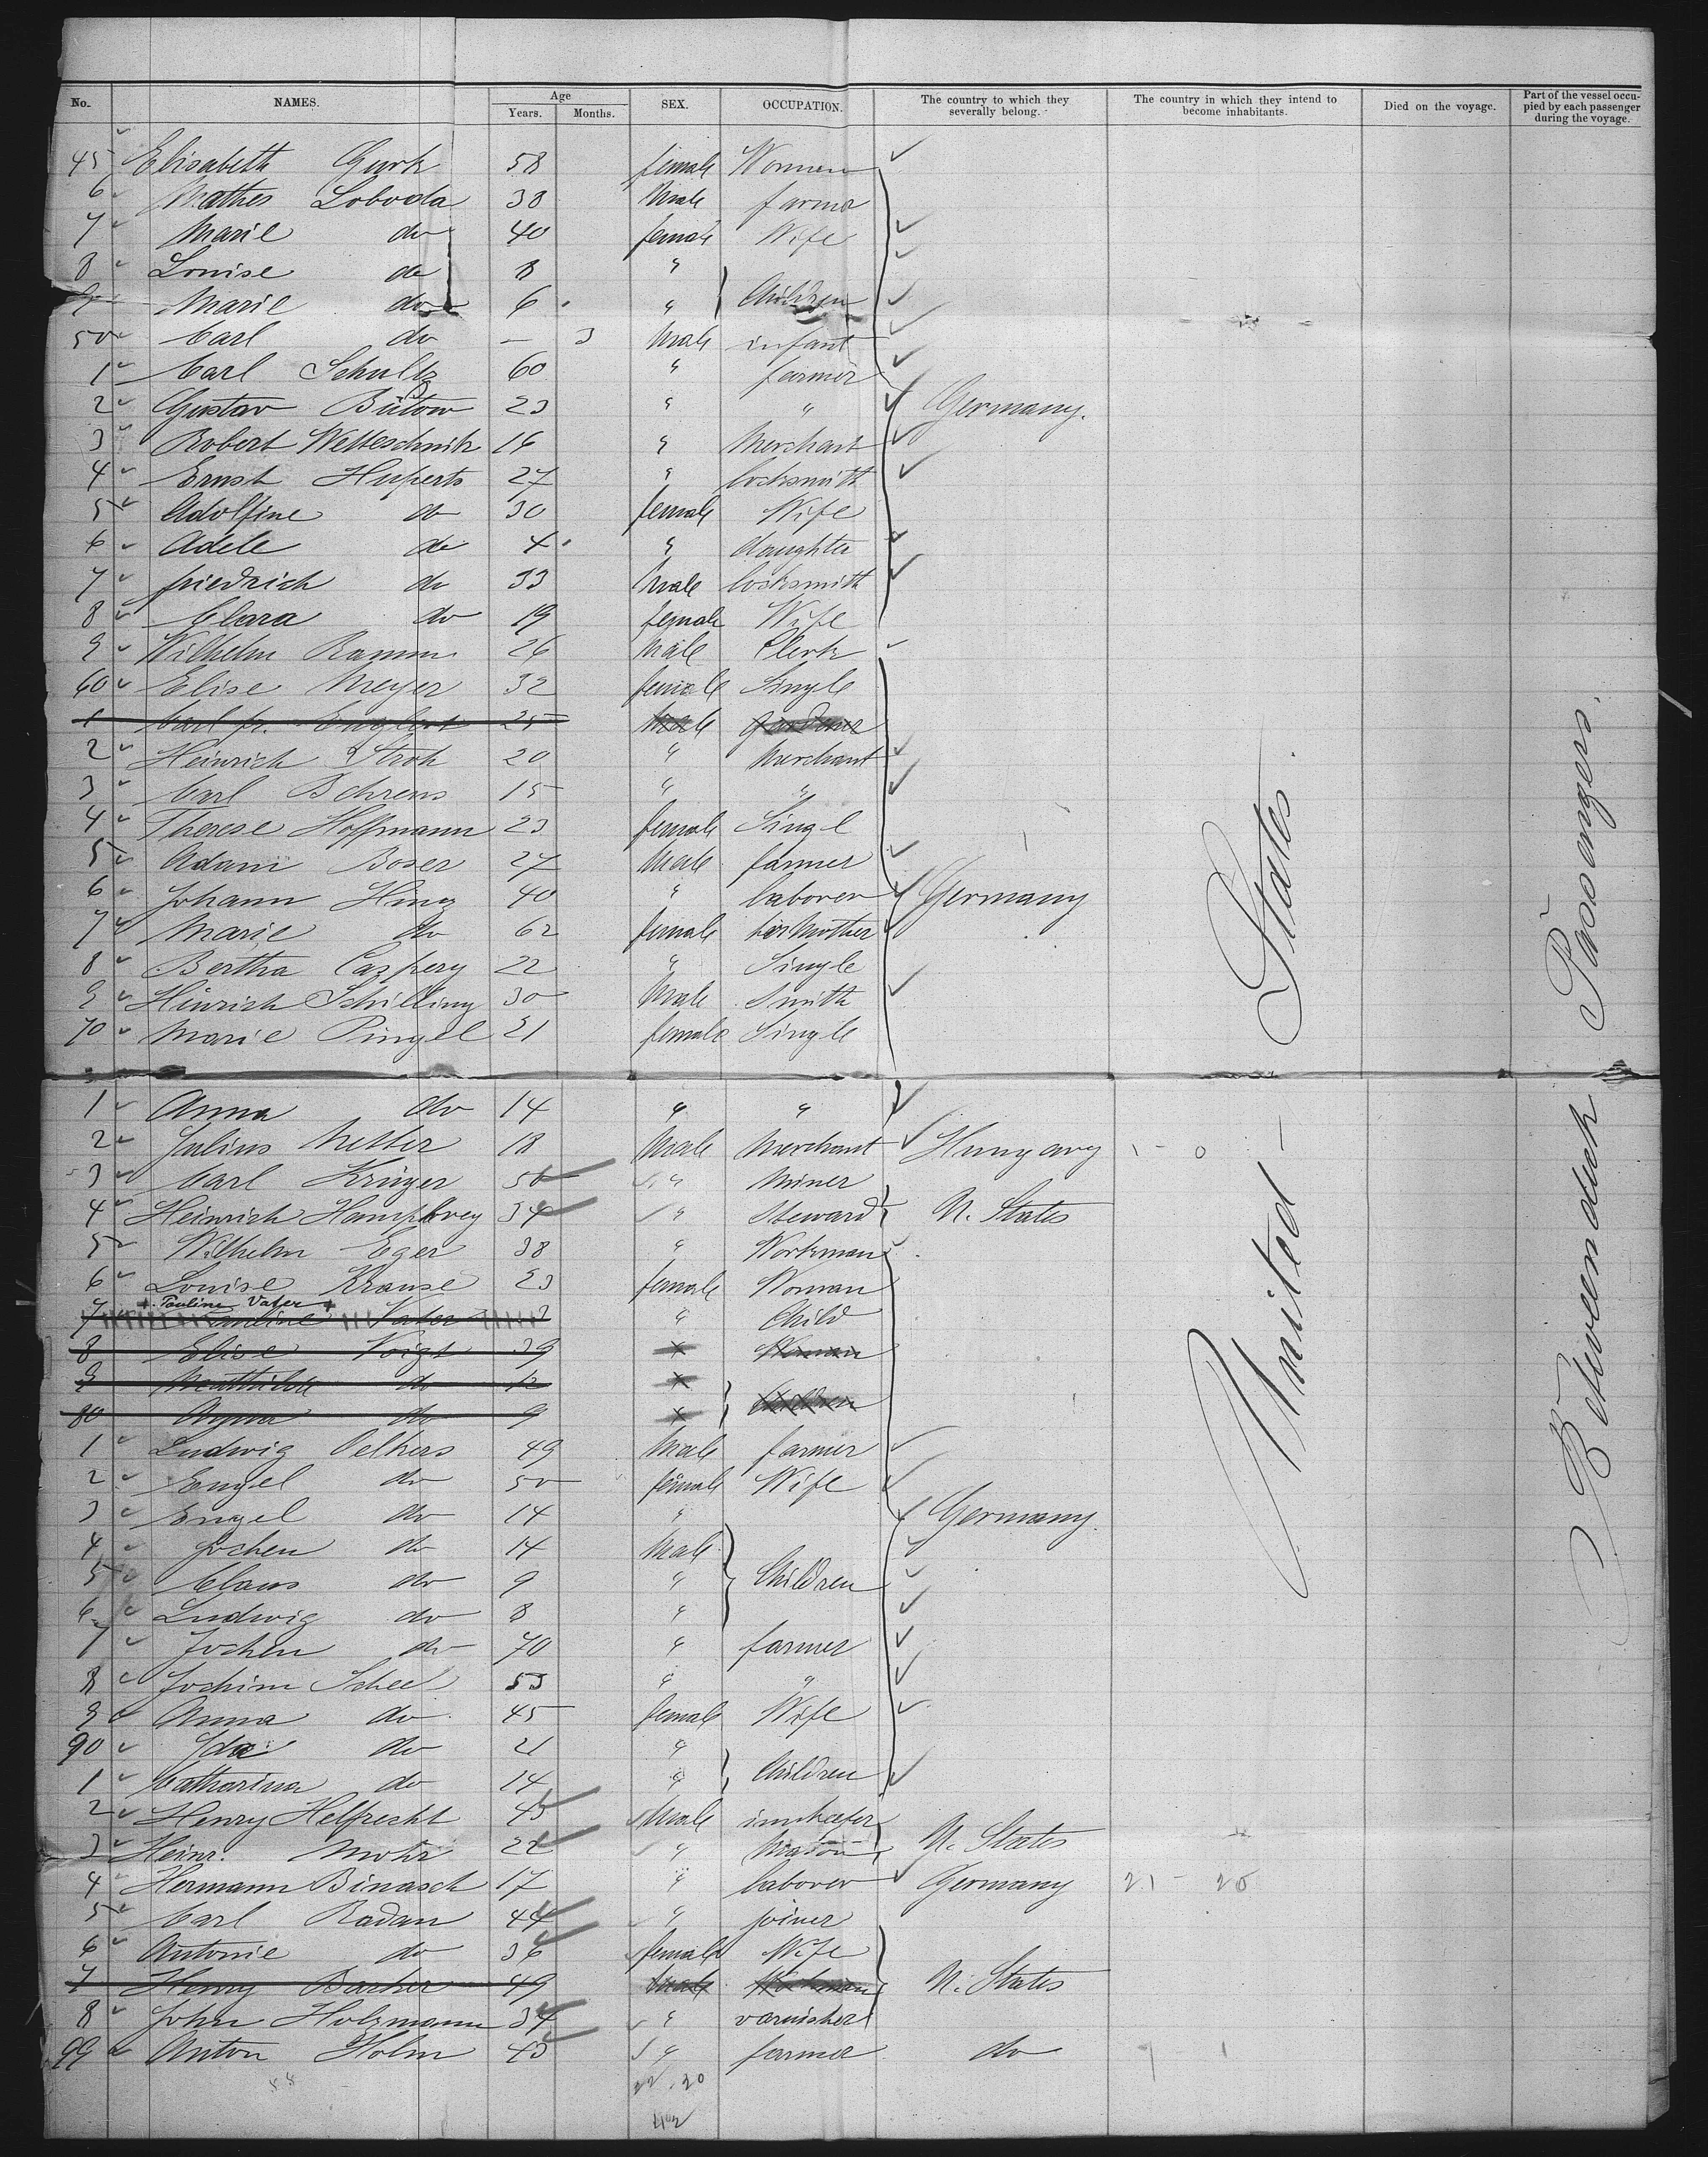 No. NAMES. Age Years. Months. SEX. OCCUPATION. The country to which they severally belong. The country in which they intend to become inhabitants. Died on the voyage. Part of the vessel occupied by each passenger during the voyage.
45 Elisabeth Gurk 58 female Woman
6 Mathes Loboda 38 Male farmer
7 Marie do 40 female Wife
8 Louise do 8 "
9 Marie do 6 " Children
50 Carl do — 3 Male infant
1 Carl Schultz 60 " farmer
2 Gustav Bütow 23 " " Germany.
3 Robert Wetteschnik 16 " Merchant
4 Ernst Huperts 27 " locksmith
5 Adolfine do 30 female Wife
6 Adele do 4 " daughter
7 friedrich do 33 Male locksmith
8 Clara do 19 female Wife
9 Wilhelm Ramm 26 Male Clerk
60 Elise Meyer 32 female Single
1 Carl fr. Englert 25 Male gardener
2 Heinrich Stroh 20 " Merchant
3 Carl Behrens 15 " "
4 Therese Hoffmann 23 female Singl
5 Adam Boser 27 Male farmer
6 Johann Hinz 40 " laborer Germany
7 Marie do 62 female his Mother
8 Bertha Caspery 22 " Single
9 Hinrich Schilling 30 Male Smith
70 Marie Pingel 21 female Single
1 Anna do 14 " "
2 Julius Netter 18 Male Merchant Hungary 1 - 0
3 Carl Krüger 50 " Miner
4 Heinrich Humphrey 34 " Steward U. States
5 Wilhelm Eger 38 " Workman
6 Louise Krause 23 female Woman
+ Pauline Vater +
7 Pauline Vater 3 " Child
8 Elise Voigt 39 " Woman
9 Mathilde do 12 "
80 Anna do 9 " Children
1 Ludwig Oelkers 49 Male farmer
2 Engel do 50 female Wife
3 Engel do 14 " Germany.
4 Jochen do 14 Male
5 Claus do 9 " Children
6 Ludwig do 8 "
7 Jochen do 70 " farmer
8 Jochim Scheel 53 " "
9 Anna do 45 female Wife
90 Ida do 21 "
1 Catharina do 14 " Children
2 Henry Helfrecht 43 Male innkeeper
3 Heinr. Mohr 22 " Mason U. States
4 Hermann Binasch 17 " laborer Germany 21 - 20
5 Carl Radan 44 " joiner
6 Antonie do 36 female Wife
7 Henry Barker 49 Male Workman U. States
8 John Holzmann 34 " varnisher
99 Anton Holm 43 " farmer do
22 . 20
United States.
Betweendeck Passengers.